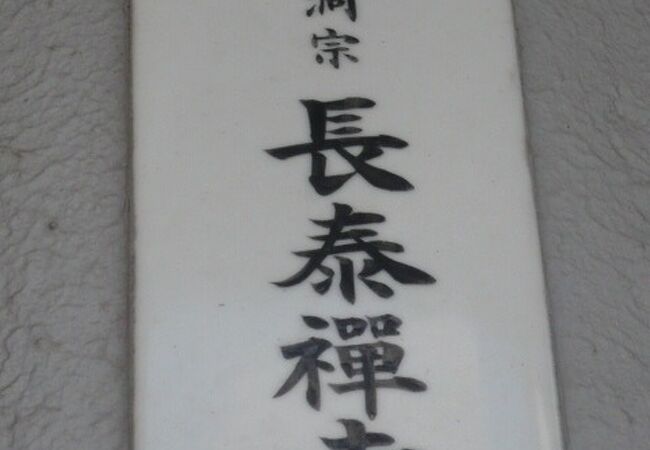 洞宗
長泰禪寺